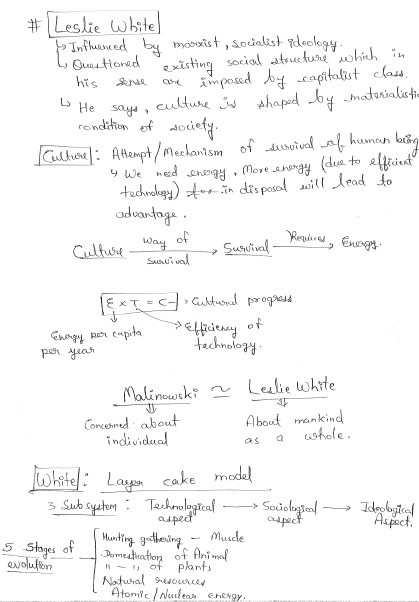 # Leslie White
↳ Influenced by marxist, socialist ideology.
↳ Questioned existing social structure which in
his sense are imposed by capitalist class.
↳ He says, culture is shaped by materialistic
condition of society.
Culture : Attempt/Mechanism of survival of human being
↳ We need energy, More energy (due to efficient
technology) in disposal will lead to
advantage.
Culture way of survival → Survival Requires → Energy.
E x T = C → Cultural progress.
Energy per capita per year
Efficiency of technology.
Malinowski ~ Leslie White
Concerned about individual
About mankind as a whole.
White : Layer cake model
3 Sub system : Technological aspect → Sociological aspect → Ideological Aspect.
5 Stages of evolution
Hunting gathering - Muscle
Domestication of Animal
" - " of plants
Natural resources
Atomic/Nuclear energy.